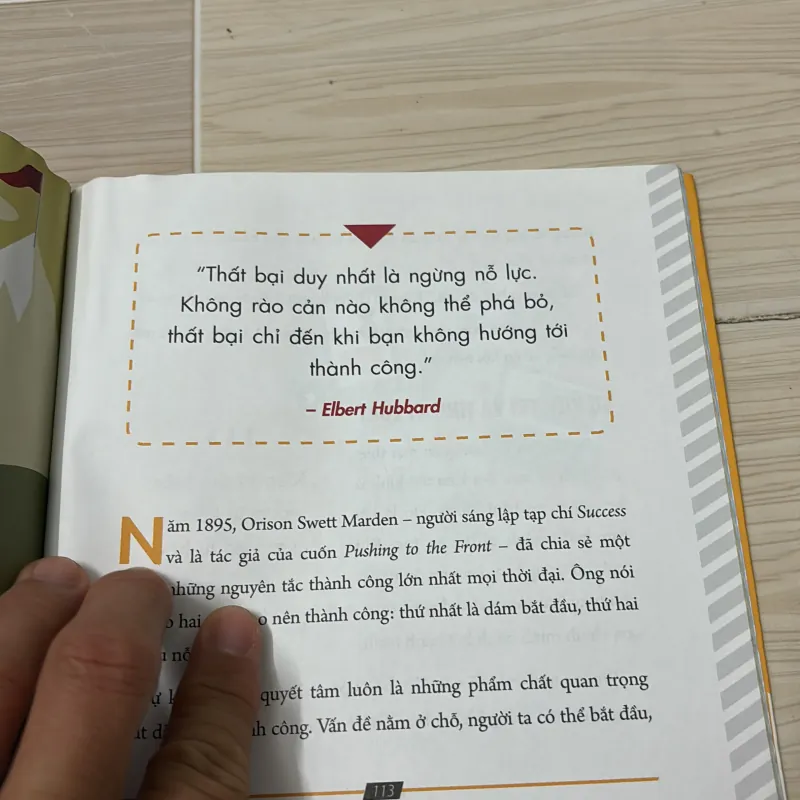 “Thất bại duy nhất là ngừng nỗ lực.
Không rào cản nào không thể phá bỏ,
thất bại chỉ đến khi bạn không hướng tới
thành công.”
– Elbert Hubbard
Năm 1895, Orison Swett Marden – người sáng lập tạp chí Success
và là tác giả của cuốn Pushing to the Front – đã chia sẻ một
những nguyên tắc thành công lớn nhất mọi thời đại. Ông nói
hai nên thành công: thứ nhất là dám bắt đầu, thứ hai
quyết tâm luôn là những phẩm chất quan trọng
công. Vấn đề nằm ở chỗ, người ta có thể bắt đầu,
113